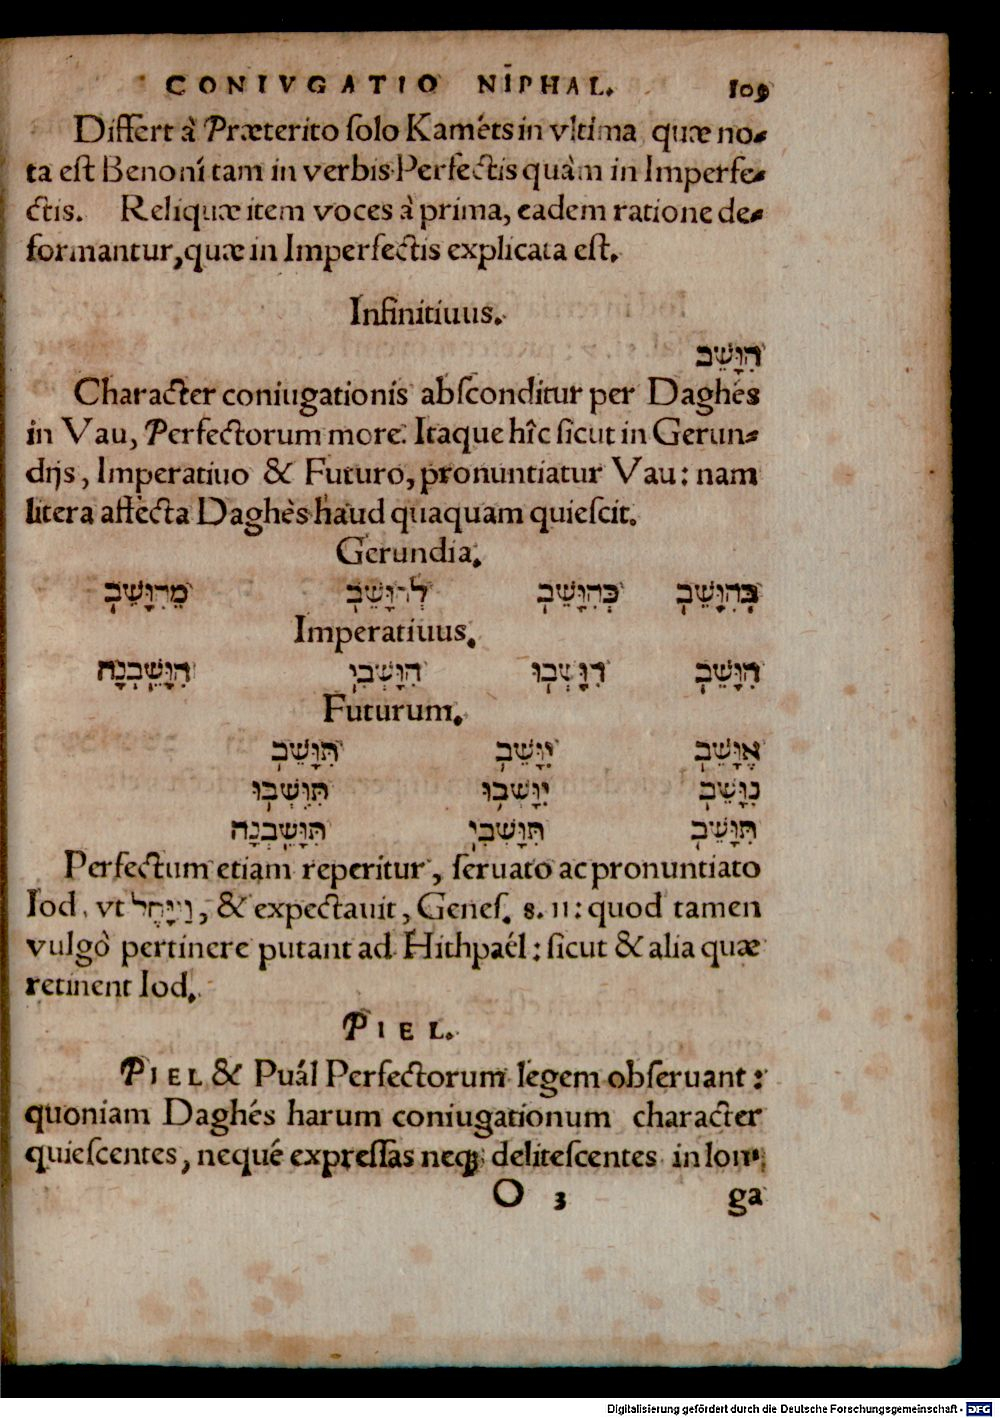 CONIVGATIO NĪPHAL. 109
Differt à Præterito ſolo Kaméts in vltima, quæ no-
ta eſt Benoní tam in verbis Perfectis quàm in Imperfe-
ctis. Reliquæ item voces à prima, eadem ratione de-
formantur, quæ in Imperfectis explicata eſt.
Infinitiuus.
הִוָּשֵׁב
Character coniugationis abſconditur per Daghés
in Vau, Perfectorum more. Itaque hîc ſicut in Gerun-
dijs, Imperatiuo & Futuro, pronuntiatur Vau: nam
litera affecta Daghès haud quaquam quieſcit.
Gerundia.
בְּהִוָּשֵׁב כְּהִוָּשֵׁב לְהִוָּשֵׁב מֵהִוָּשֵׁב
Imperatiuus.
הִוָּשֵׁב הִוָּשְׁבוּ הִוָּשְׁבִי הִוָּשֵׁבְנָה
Futurum.
אֶוָּשֵׁב יִוָּשֵׁב תִּוָּשֵׁב
נִוָּשֵׁב יִוָּשְׁבוּ תִּוָּשְׁבוּ
תִּוָּשֵׁב תִּוָּשְׁבִי תִּוָּשֵׁבְנָה
Perfectum etiam reperitur, ſeruato ac pronuntiato
Iod, vt וַיִּיָּחֶל, & expectauit, Geneſ. 8. 11: quod tamen
vulgò pertinere putant ad Hithpaél: ſicut & alia quæ
retinent Iod.
PIEL.
PIEL & Puál Perfectorum legem obſeruant:
quoniam Daghés harum coniugationum character
quieſcentes, nequé expreſſas neq; deliteſcentes in lon-
O 3 ga
Digitalisierung gefördert durch die Deutsche Forschungsgemeinschaft - DFG